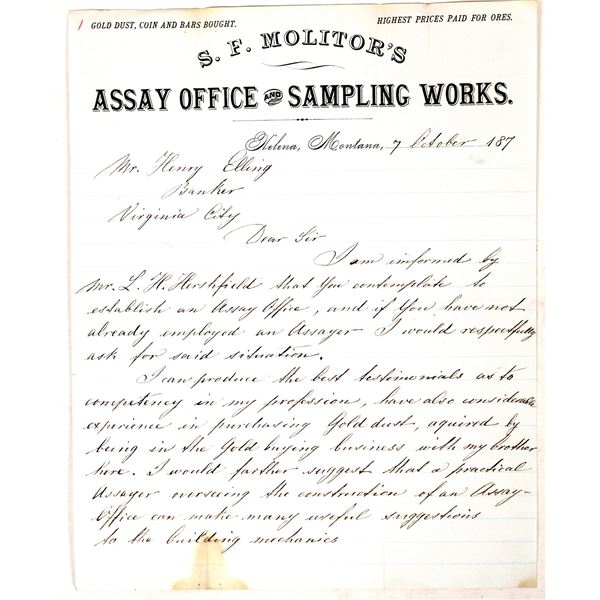 GOLD DUST, COIN AND BARS BOUGHT. HIGHEST PRICES PAID FOR ORES.
S. F. MOLITOR'S
ASSAY OFFICE AND SAMPLING WORKS.
Helena, Montana, 7 October 187
Mr. Henry Elling
Banker
Virginia City
Dear Sir
I am imformed by
Mr. L. H. Hershfield that You contemplate to
establish an Assay Office, and if You have not
already employed an Assayer I would respectfully
ask for said situation.
I can produce the best testimonials as to
competency in my profession, have also considerable
experience in purchasing Gold dust, aquired by
being in the Gold buying business with my brother
here. I would farther suggest that a practical
Assayer overseeing the construction of an Assay-
Office can make many useful suggestions
to the building mechanics